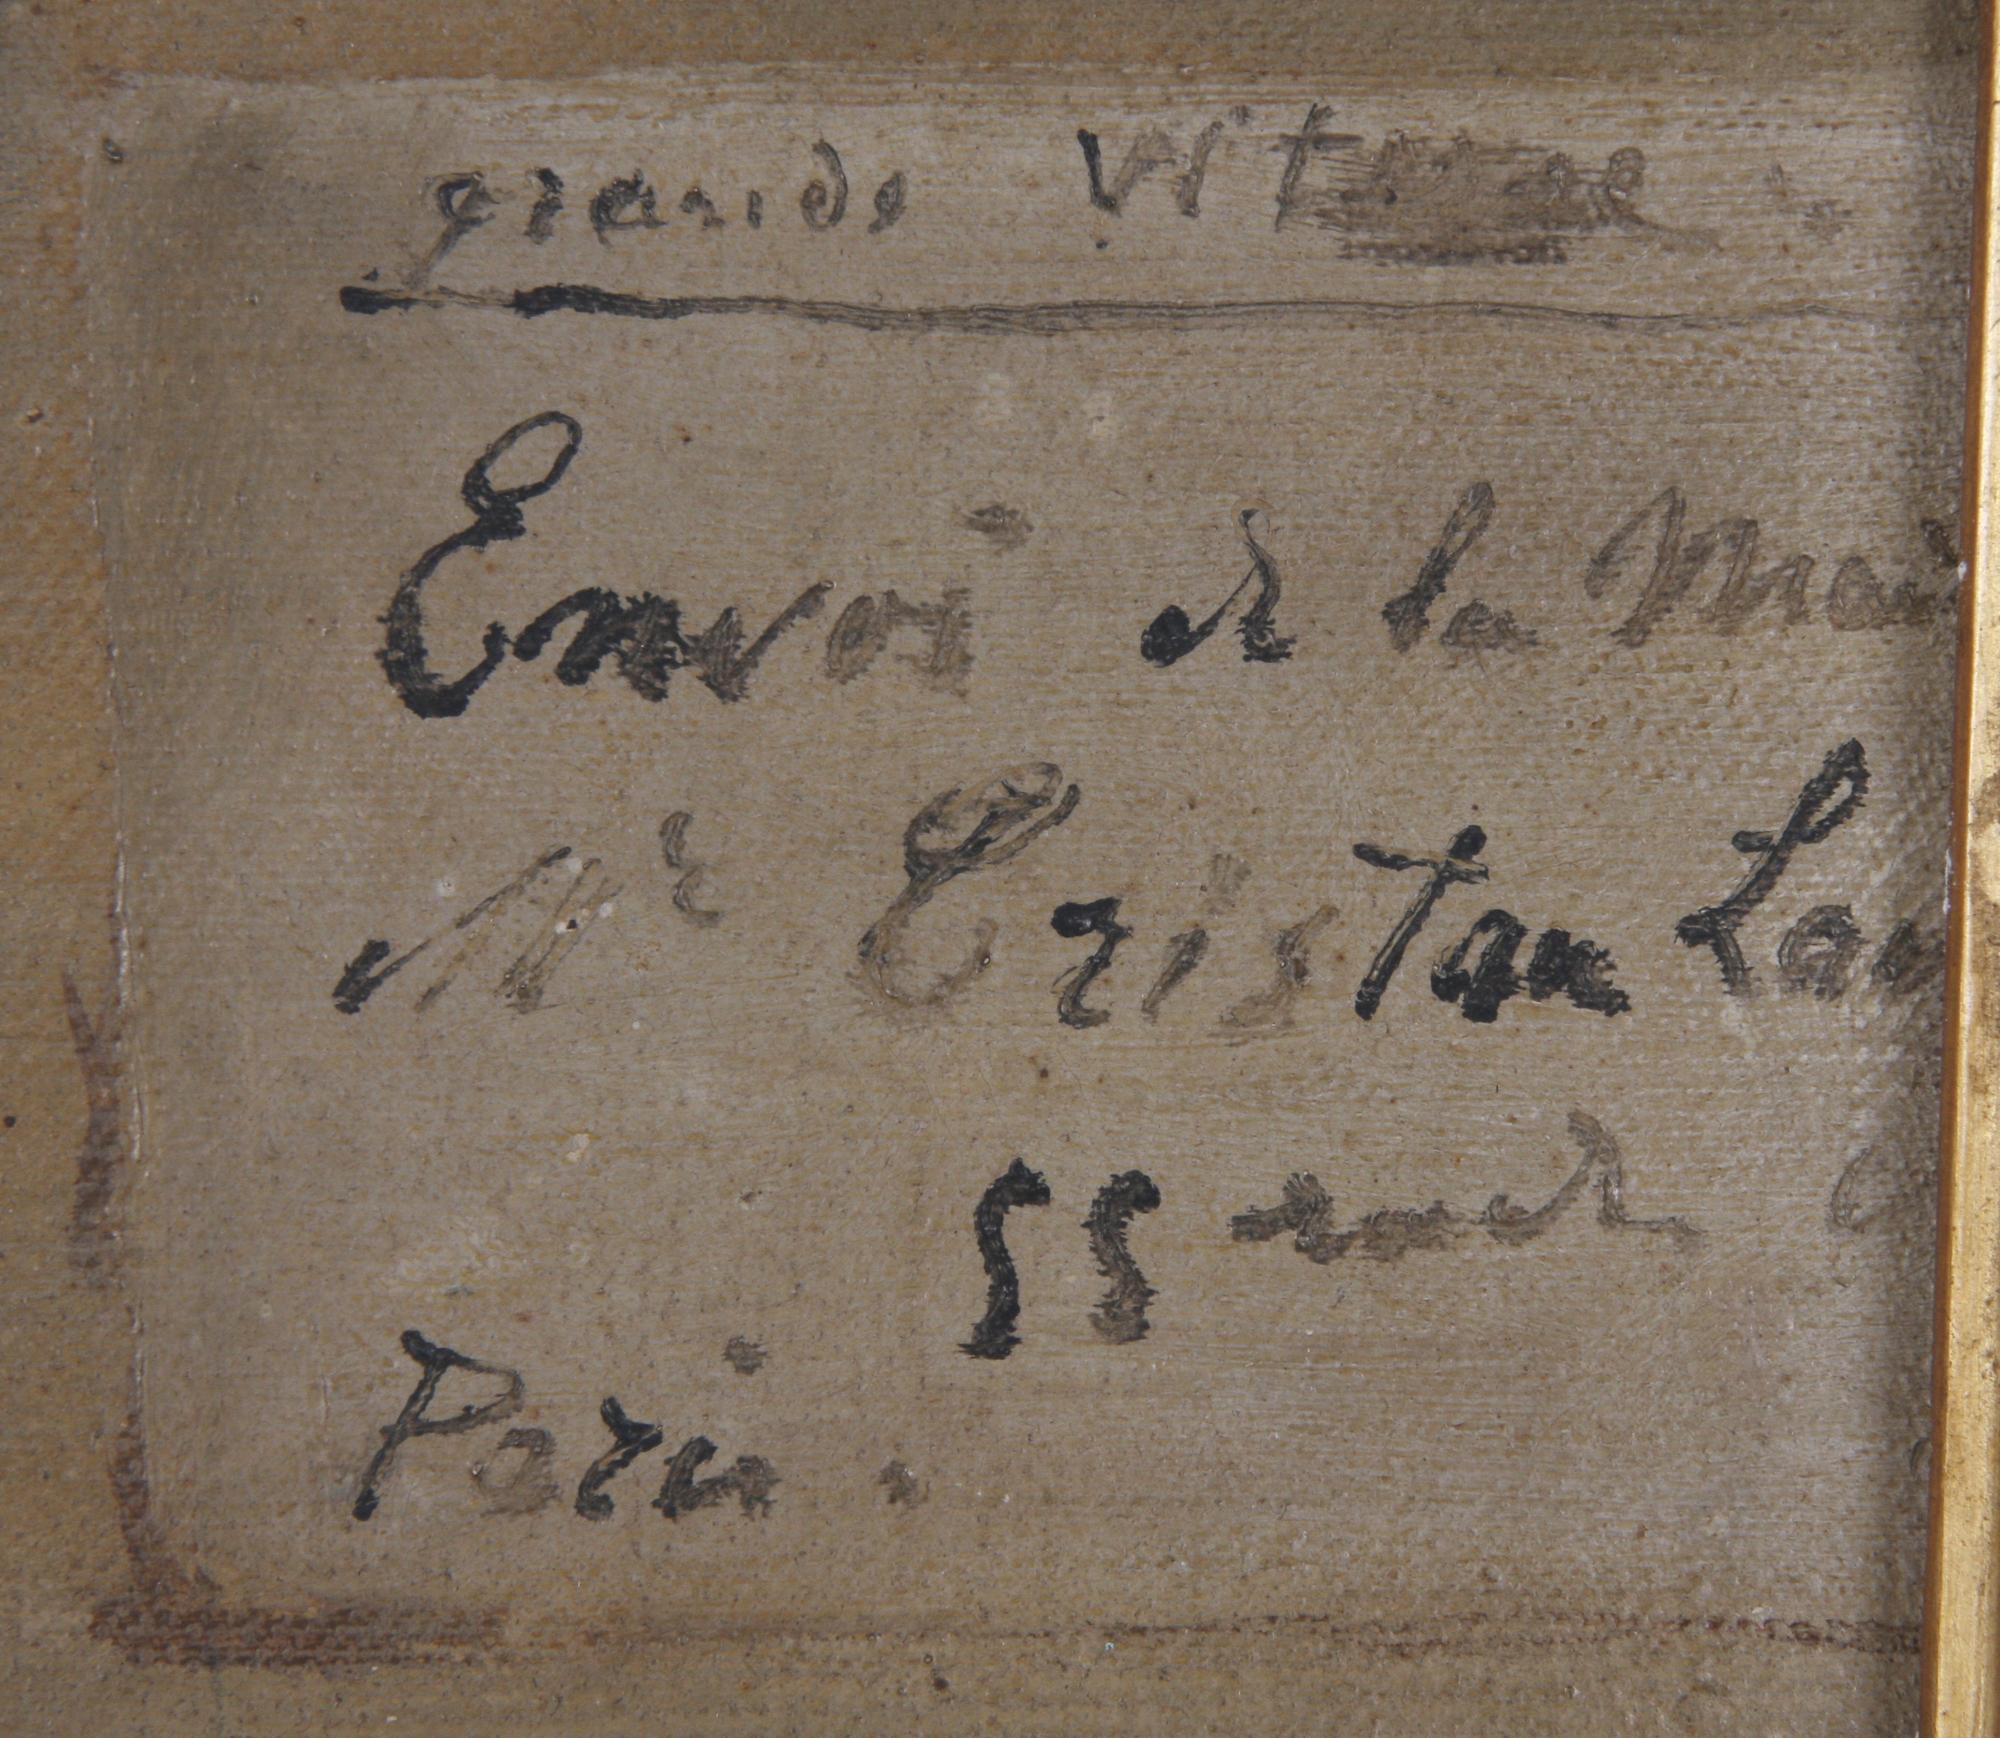 grande vitesse .
Envoi de la Mai
Mr Tristan La
55 rue de
Paris .